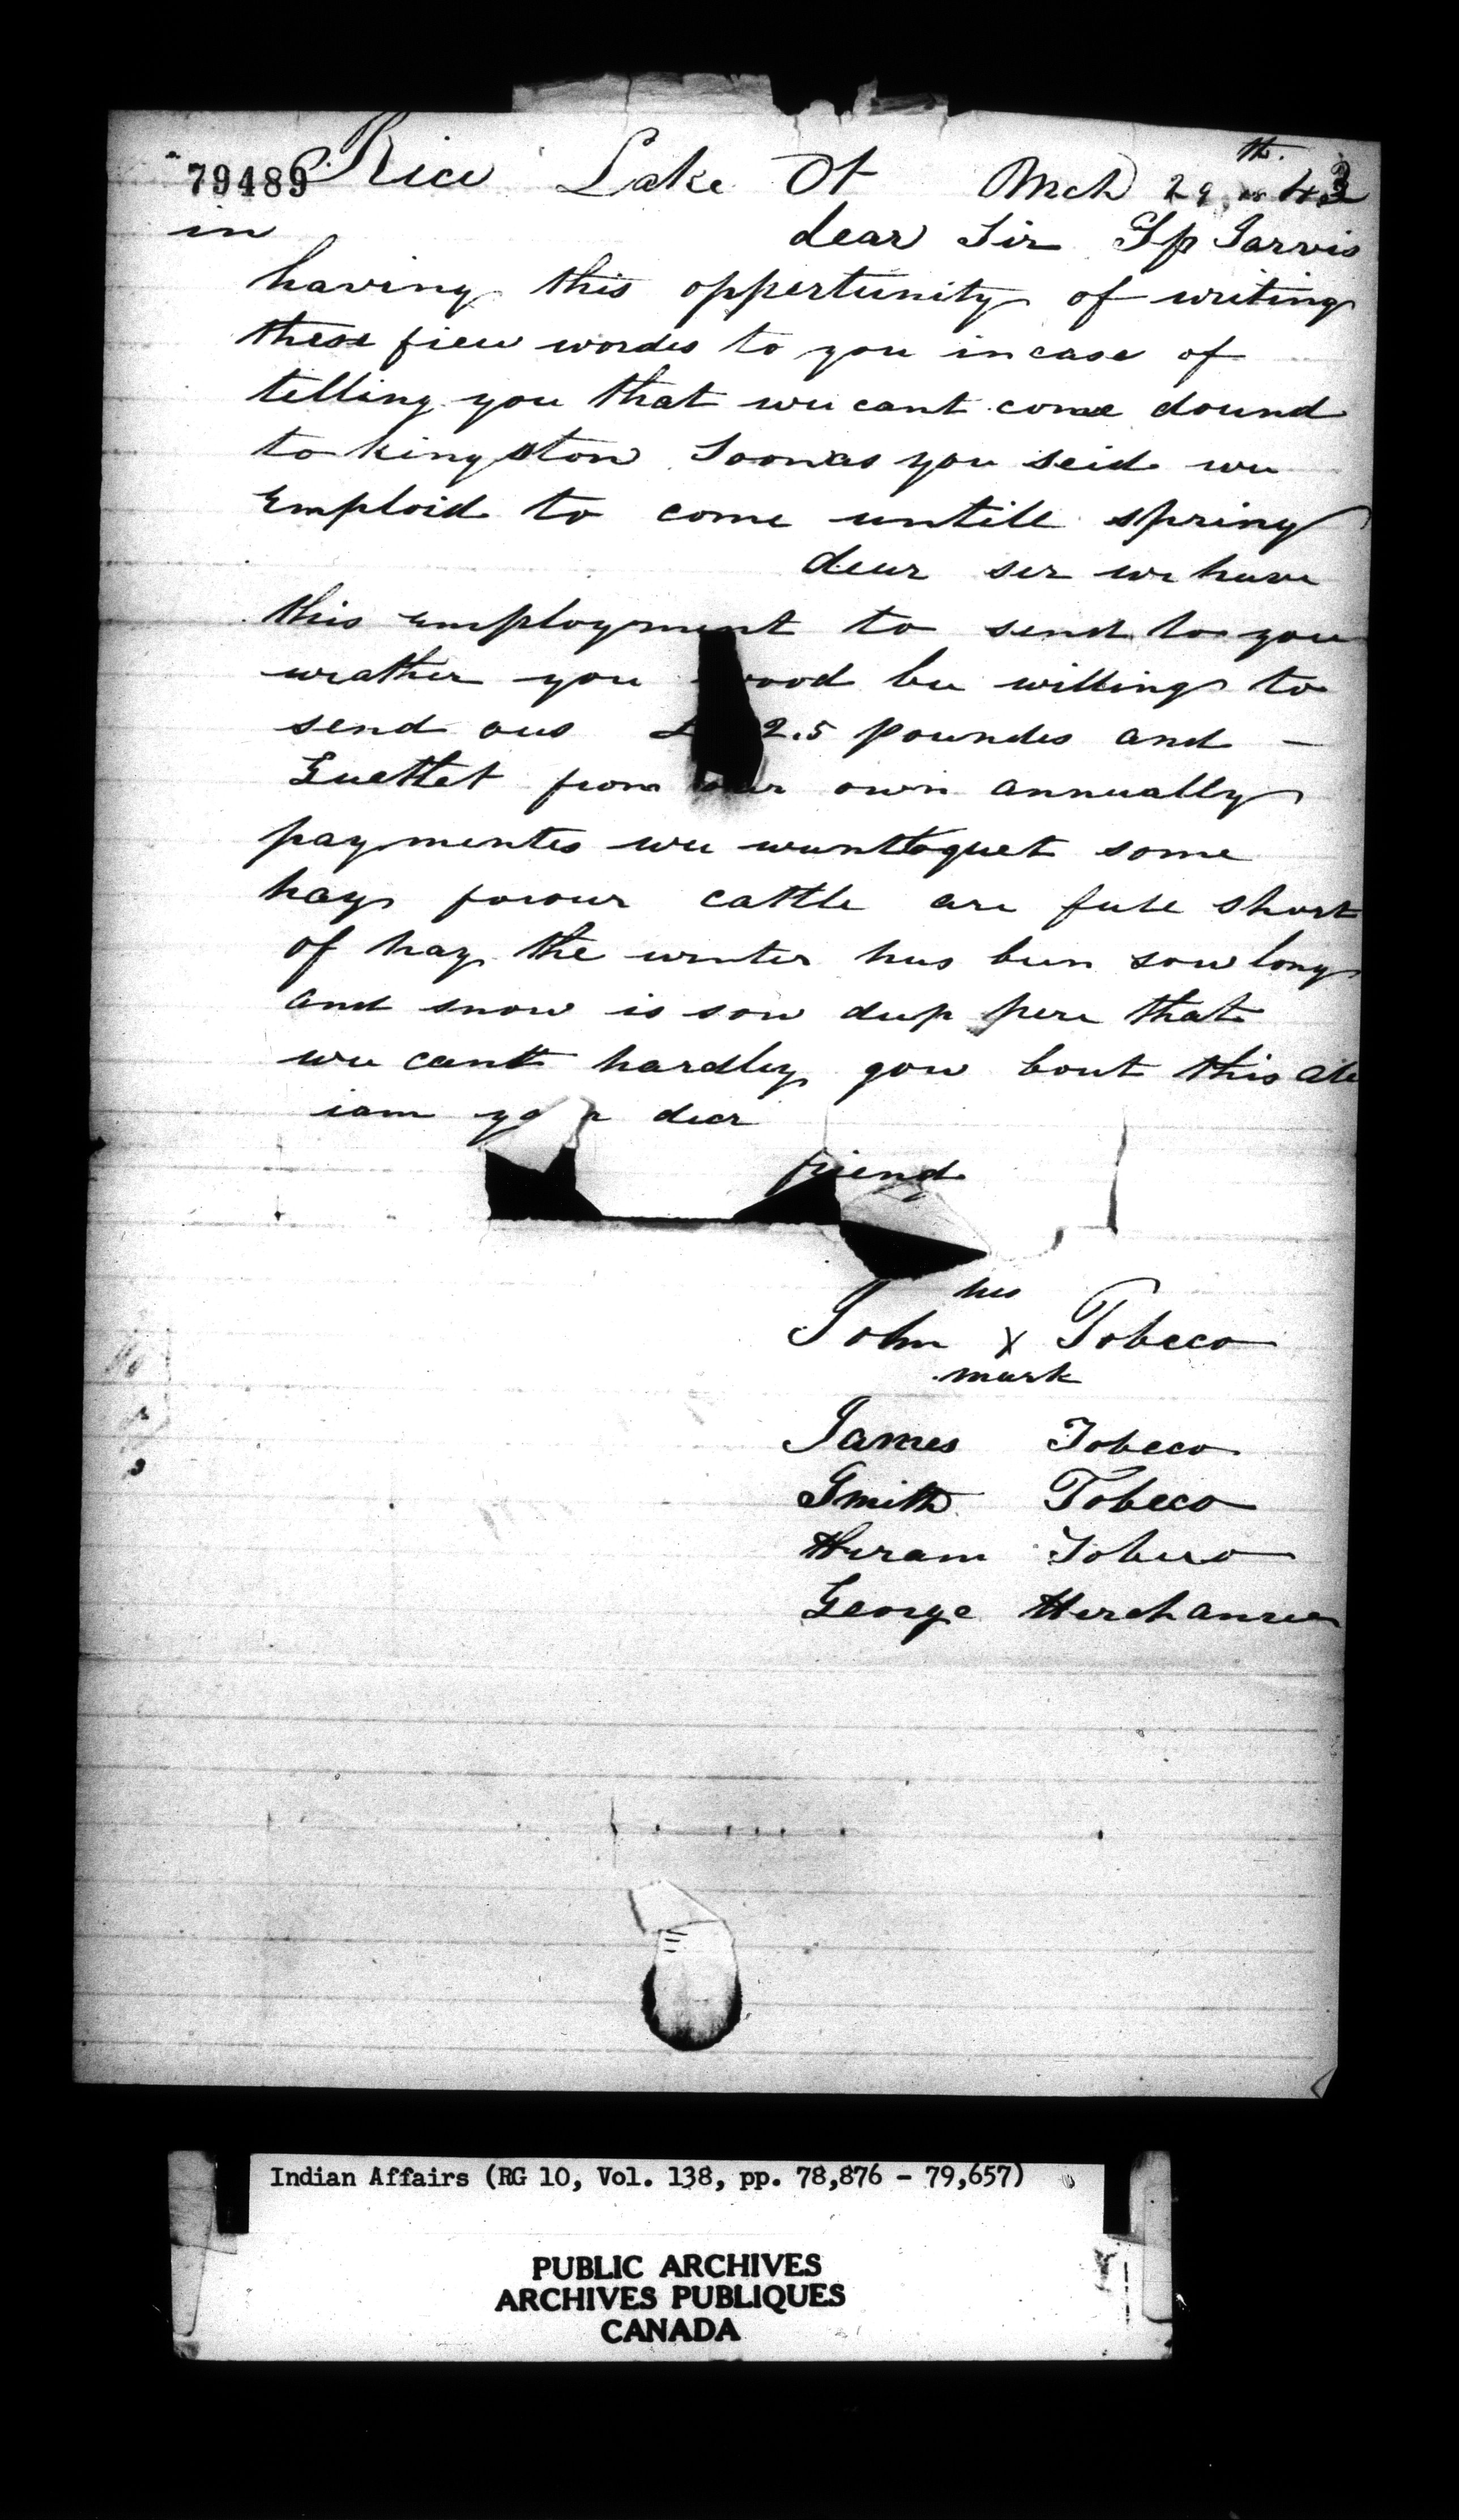 79489
Rice Lake Ot Mch 29th 43
in dear Sir Sp Jarvis
having this oppertunity of writing
these fiew wordes to you in case of
telling you that we cant come dound
to kingston Soon as you seid we
Emploid to come untill spring
dear ser we have
this employment to send to you
wrather you wood be willing to
send ous £ 2.5 poundes and –
Guettet from our own annually
paymentes we wunt to guet some
hay forour cattle are fule short
of hay the winter hus been sow long
and snow is sow deep here that
we cant hardly gow bout this ale
iam yo r dear
friend
his
John x Tobeco
mark
James Tobeco
Smith Tobeco
Hiram Tobeco
George
Indian Affairs (RG 10, Vol. 138, pp. 78,876 - 79,657)
PUBLIC ARCHIVES
ARCHIVES PUBLIQUES
CANADA